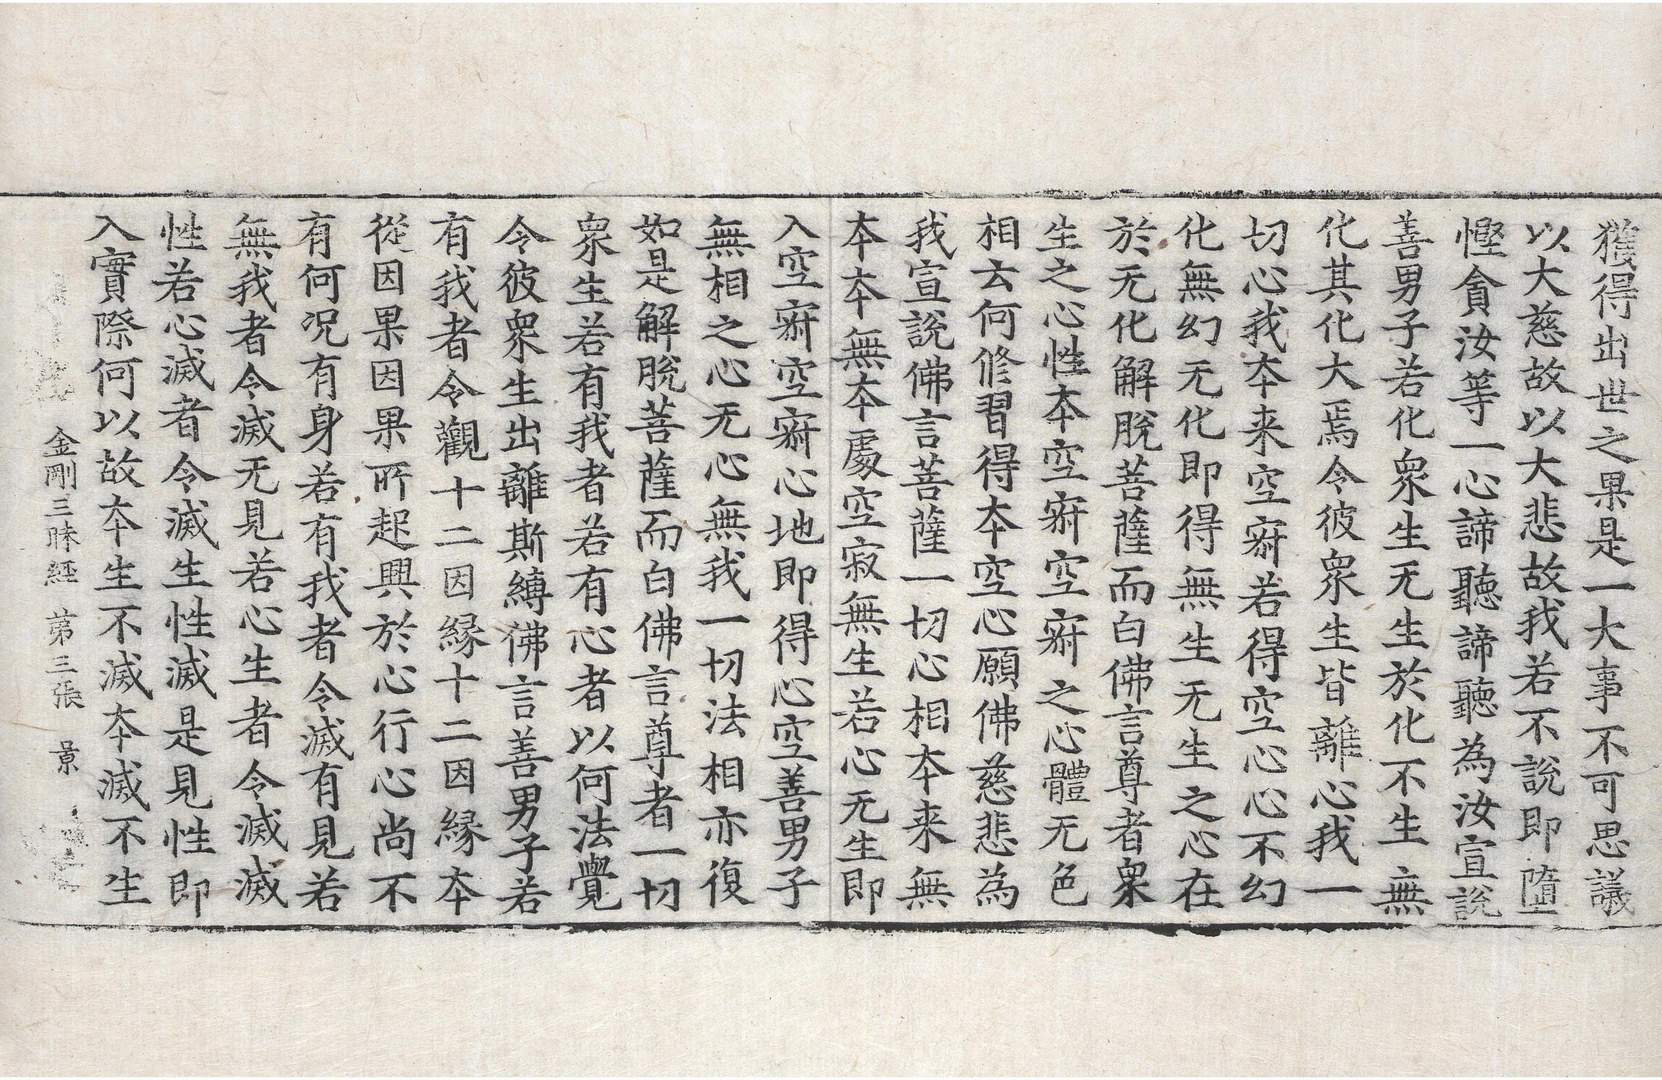 獲得出世之果是一大事不可思議
以大慈故以大悲故我若不說即墮
慳貪汝等一心諦聽諦聽為汝宣說
善男子若化衆生无生於化不生無
化其化大焉令彼衆生皆離心我一
切心我夲来空㝛若得空心心不幻
化無幻无化即得無生无生之心在
於无化解脫菩薩而白佛言尊者衆
生之心性夲空㝛空㝛之心體无色
相云何修習得夲空心願佛慈悲為
我宣說佛言菩薩一切心相夲来無
夲夲無夲處空寂無生若心无生即
入空㝛空㝛心地即得心空善男子
無相之心无心無我一切法相亦復
如是解脫菩薩而白佛言尊者一切
衆生若有我者若有心者以何法覺
令彼衆生出離斯縛佛言善男子若
有我者令觀十二因縁十二因縁夲
從因果因果所起興於心行心尚不
有何况有身若有我者令滅有見若
無我者令滅无見若心生者令滅滅
性若心滅者令滅生性滅是見性即
入實際何以故夲生不滅夲滅不生
金剛三昧経 苐三張 景